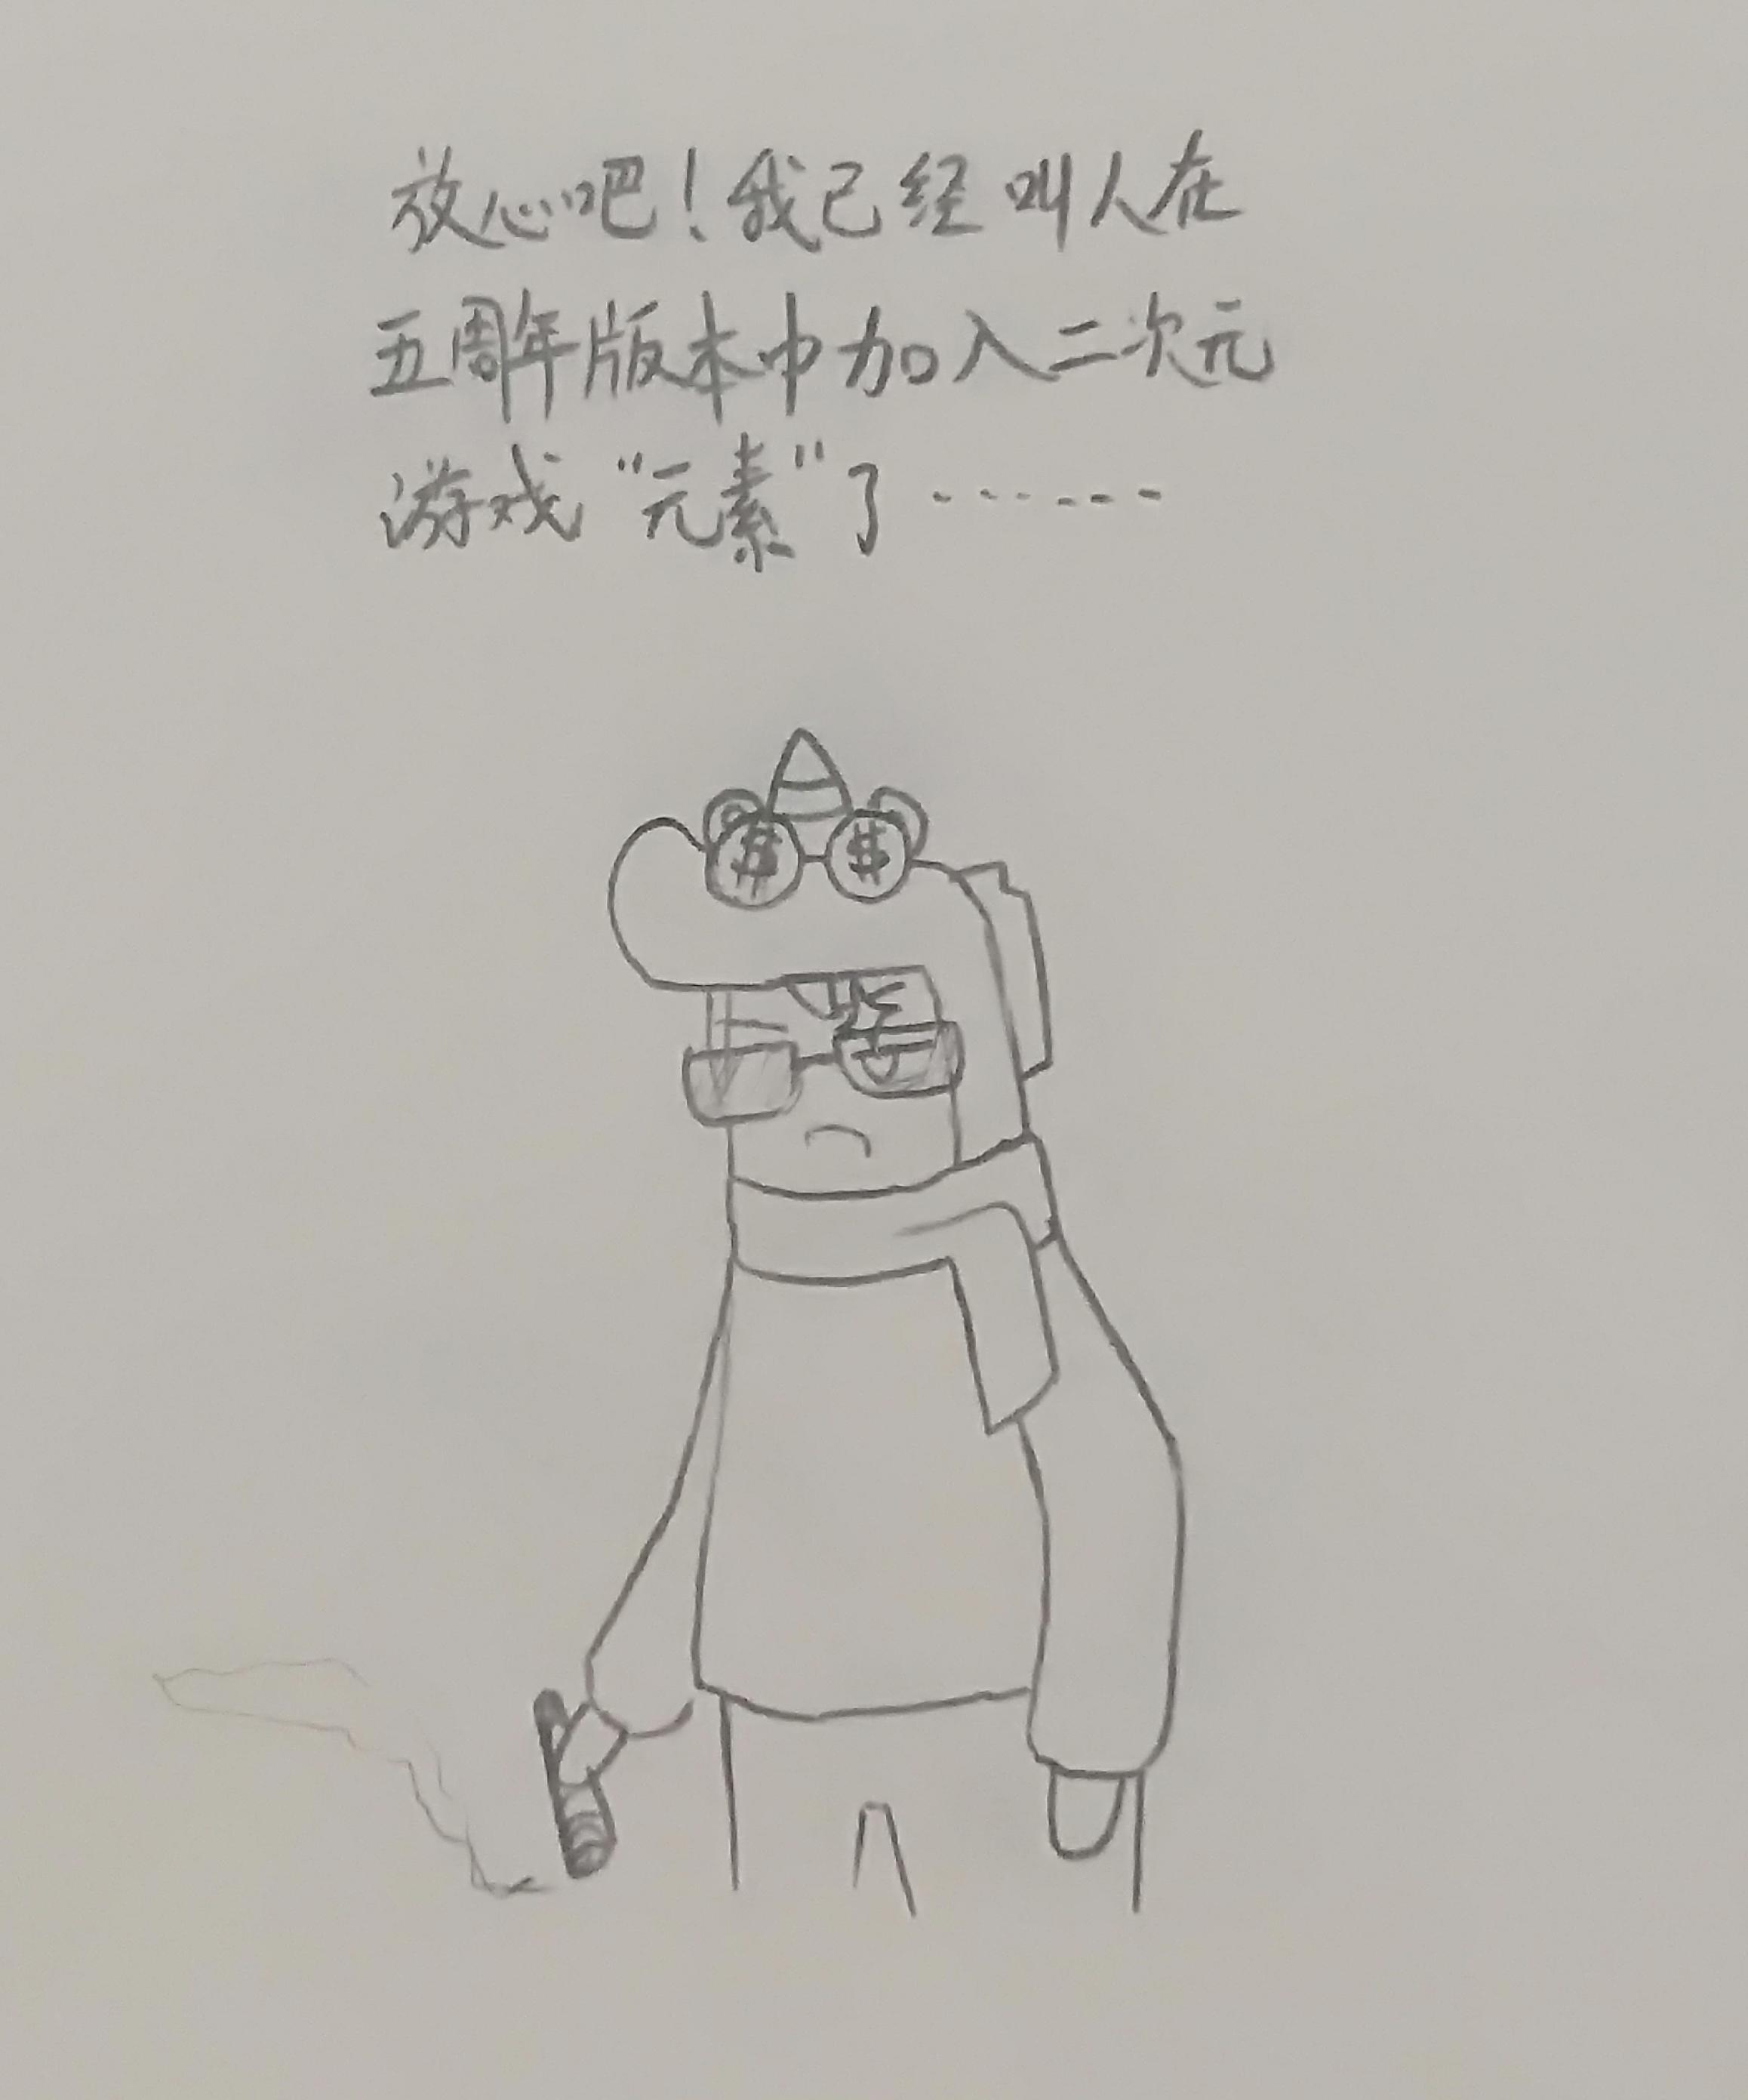 放心吧！我已经叫人在
五周年版本中加入二次元
游戏“元素”了……
$ $